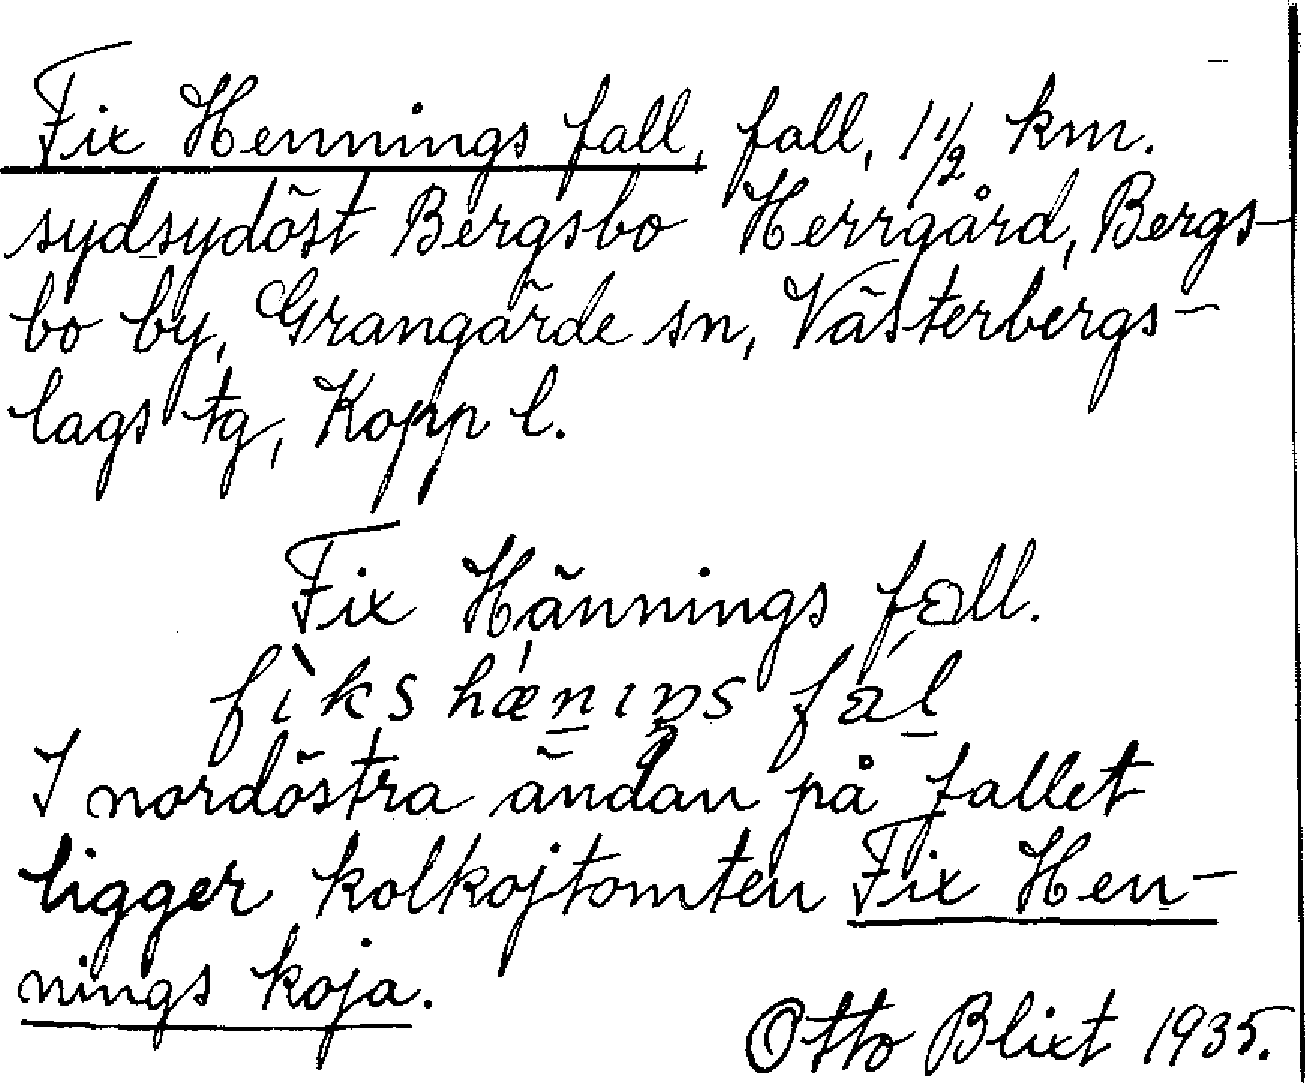 Fix Hennings fall, fall, 1 1/2 km.
sydsydöst Bergsbo Herrgård, Bergs-
bo by, Grangärde sn, Västerbergs-
lags tg, Kopp l.
Fix Hännings fall.
fìks hænıŋs fal
I nordöstra ändan på fallet
ligger kolkojtomten Fix Hen-
nings koja.
Otto Blixt 1935.